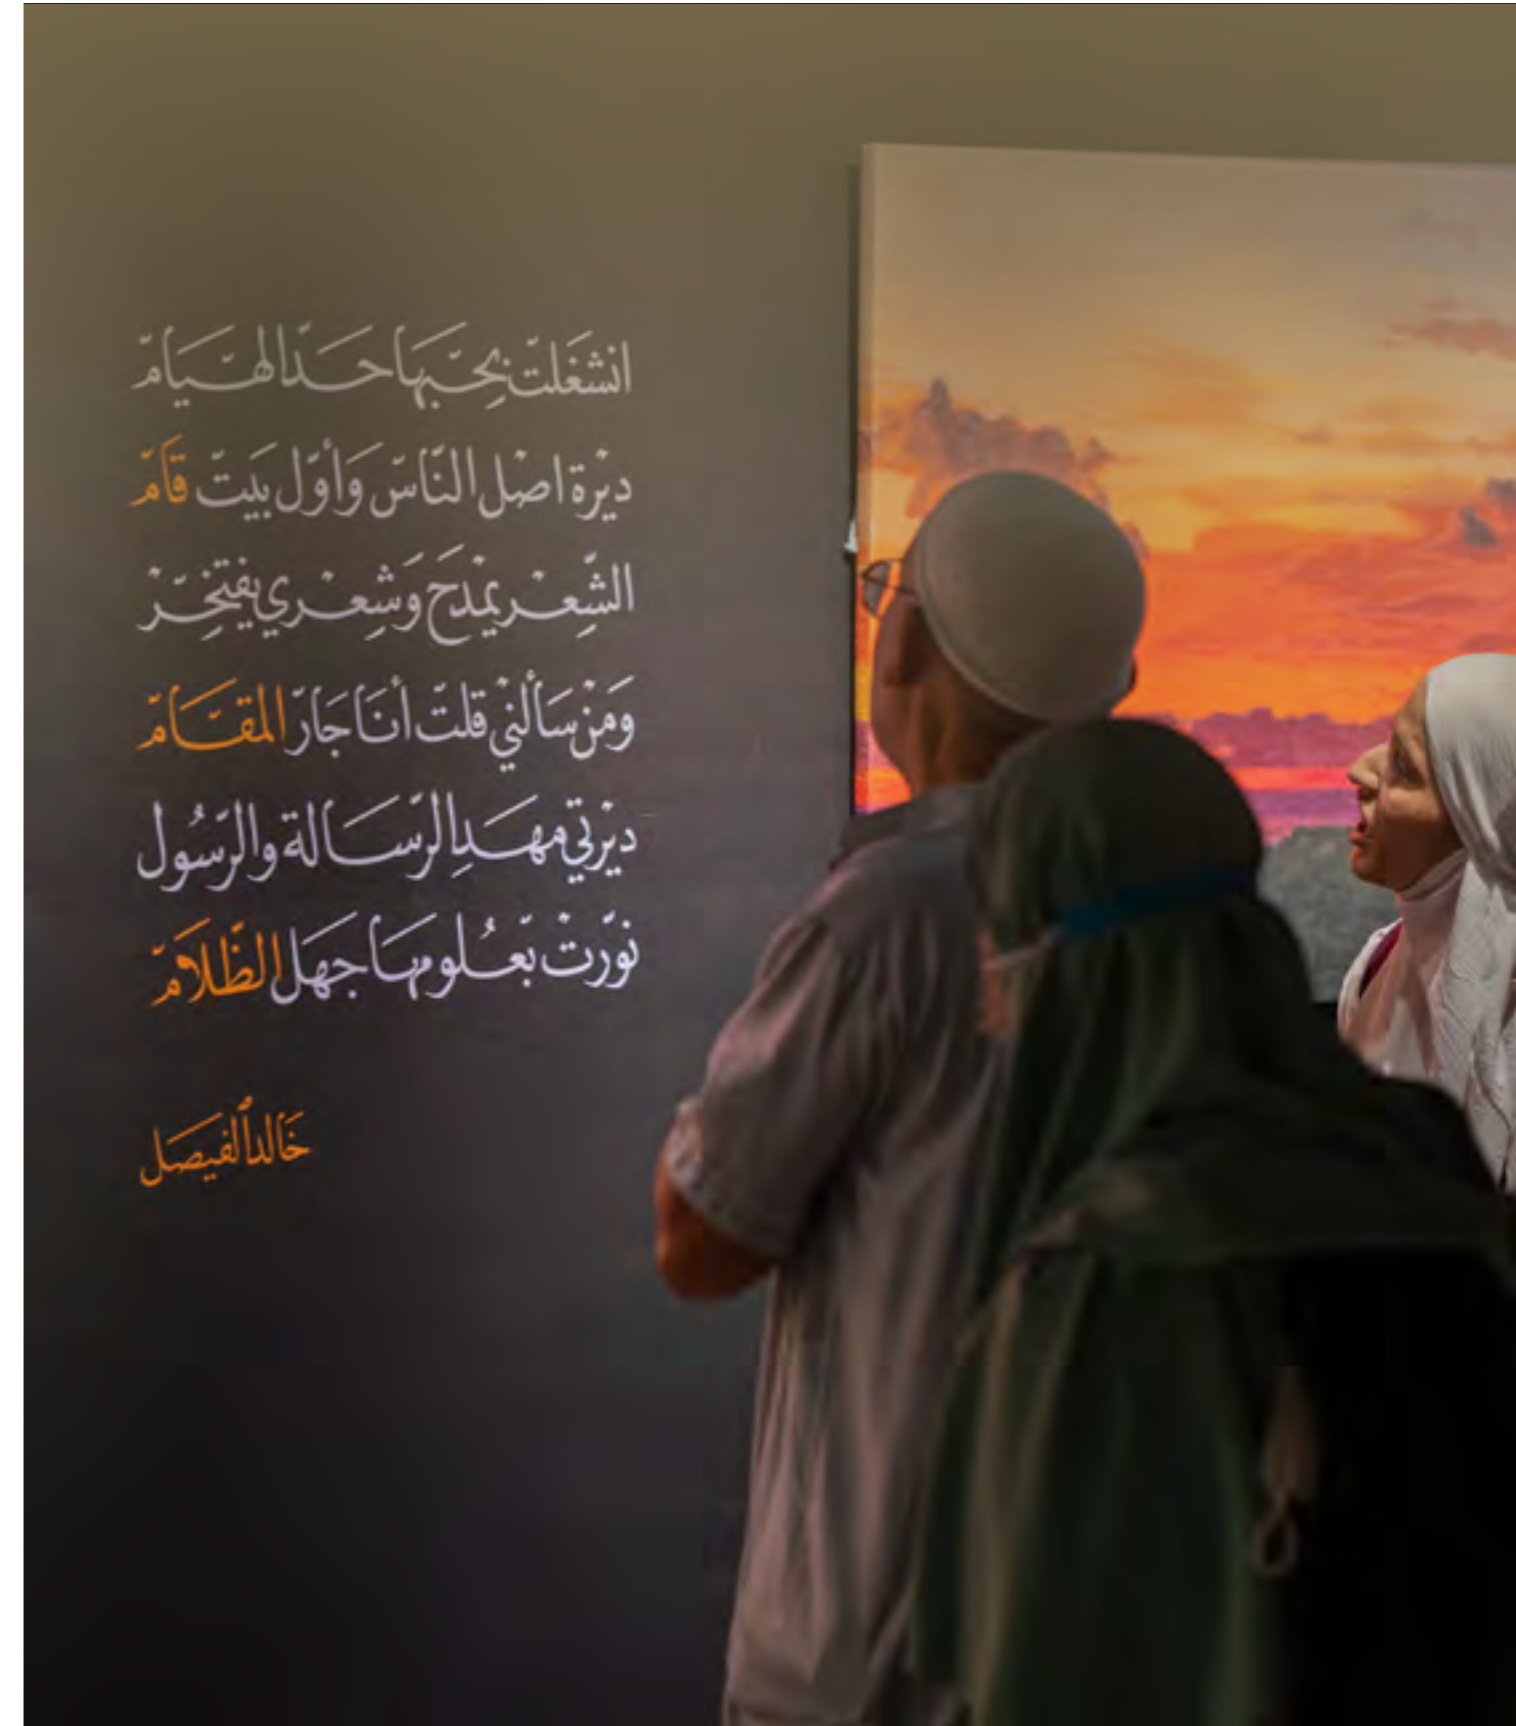 انشغَلتّ بحِبّها حَدّ الهيّامّ
ديْرة اصْل النّاسّ وَأوّل بَيتّ قَامّ
الشِّعْر يمْدَح وَشِعْري يفتخِرّ
وَمَنْ سَألنيْ قلتّ أنَا جَارّ المقَامّ
ديْرتي مهَدِ الرّسَالة والرّسُول
نوّرتْ بَعُلومهَا جهَل الظّلاَمّ
خَالد الفيصَل